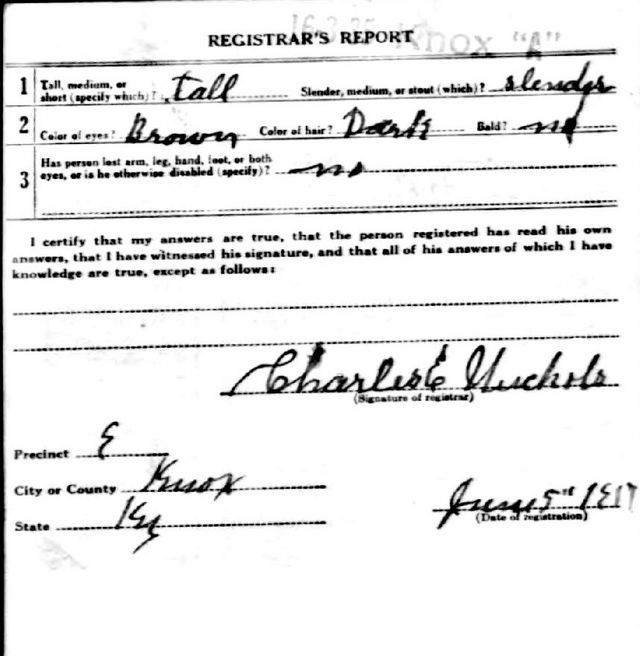 16-3-25 Knox "A"
REGISTRAR'S REPORT
1 Tall, medium, or short (specify which)? Tall Slender, medium, or stout (which)? slender
2 Color of eyes? Brown Color of hair? Dark Bald? no
3 Has person lost arm, leg, hand, foot, or both eyes, or is he otherwise disabled (specify)? no
I certify that my answers are true, that the person registered has read his own
answers, that I have witnessed his signature, and that all of his answers of which I have
knowledge are true, except as follows:
Charles E
(Signature of registrar)
Precinct E
City or County Knox
State Ky
June 5th 1917
(Date of registration)